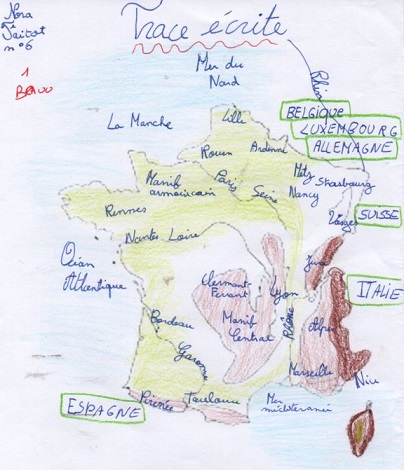 Nora
n°6
Trace écrite
1
Bravo
Mer du
Nord
Rhin
La Manche
Lille
BELGIQUE
LUXEMBOURG
ALLEMAGNE
Rouen
Ardenne
Metz
Strasbourg
Massif
armoricain
Paris
Seine
Nancy
Rennes
Vosges
SUISSE
Nantes Loire
Océan
Atlantique
Jura
Clermont-
Ferrant
Lyon
ITALIE
Bordeau
Massif
Central
Rhône
Alpes
Garonne
Marseille
Nice
ESPAGNE
Pirenée
Toulouse
Mer
méditeranée